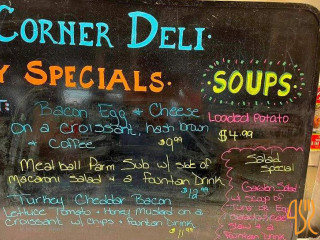 CORNER DELI.
Y SPECIALS.
SOUPS
T:
Bacon Egg & Cheese
on a croissant, hash brown
& coffee $9.99
Loaded Potato
$4.99
Meatball Parm Sub w/ side of
macaroni salad & a Fountain Drink
$12.99
Turkey Cheddar Bacon
Lettuce Tomato & Honey Mustard on a
croissant w/ chips & Fountain Drink
$11.99
Salad
Special
Garden Salad
w/ scoop of
Tuna or
salad
Fountain Drink